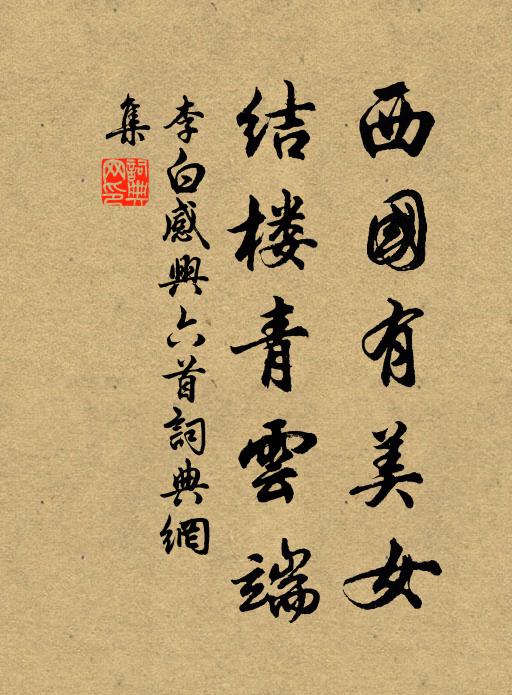 西國有美女
结楼青雲端
李白感興六首詞典網
集
詞典
网印